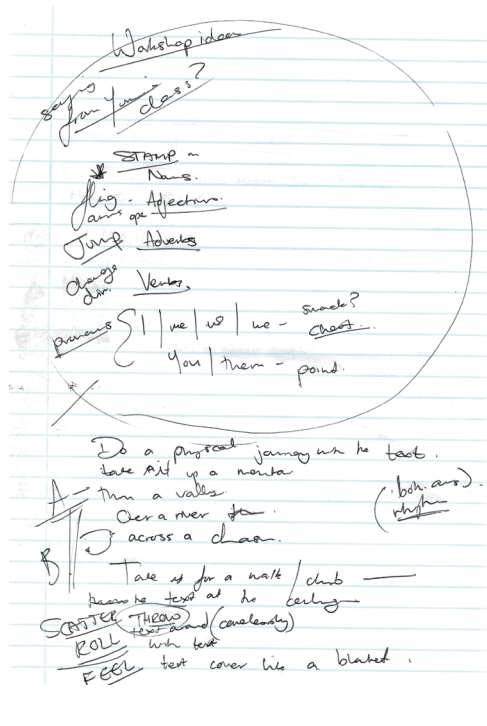 Workshop ideas
saying
from your
class?
STAMP -
Nouns.
fling - Adjectives.
arms ope
Jump Adverbs
change
dir. Verbs,
pronouns { I | me | us | we - smack?
chest.
You | them - point.
Do a physical journey with the text.
take it up a
A - thru a valley
Over a river
(both. ans).
rhythm
B
across a chasm.
Take it for a walk / climb
the text at the ceiling
SCATTER THROW
text around (carelessly)
ROLL with text
FEEL text cover like a blanket.